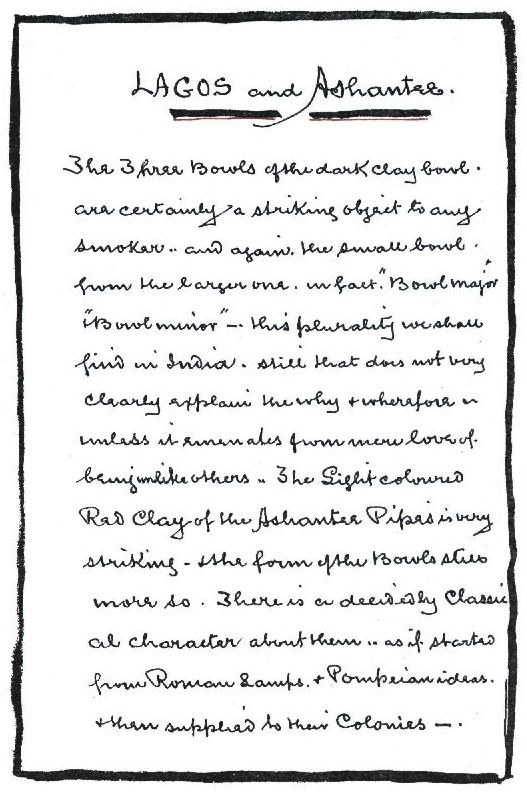 LAGOS and Ashantee.
The Three Bowls of the dark clay bowl.
are certainly a striking object to any
smoker.. and again. the small bowl.
from the larger one. in fact. "Bowl major"
"Bowl minor" — this plurality we shall
find in India. still that does not very
clearly explain the why & wherefore
unless it emenates from mere love of.
being unlike others .. The Light coloured
Red Clay of the Ashantee Pipes is very
striking - & the form of the Bowls still
more so. There is a decidedly Classic
al character about them .. as if started
from Roman Lamps. & Pompeian ideas.
& then supplied to their Colonies —.